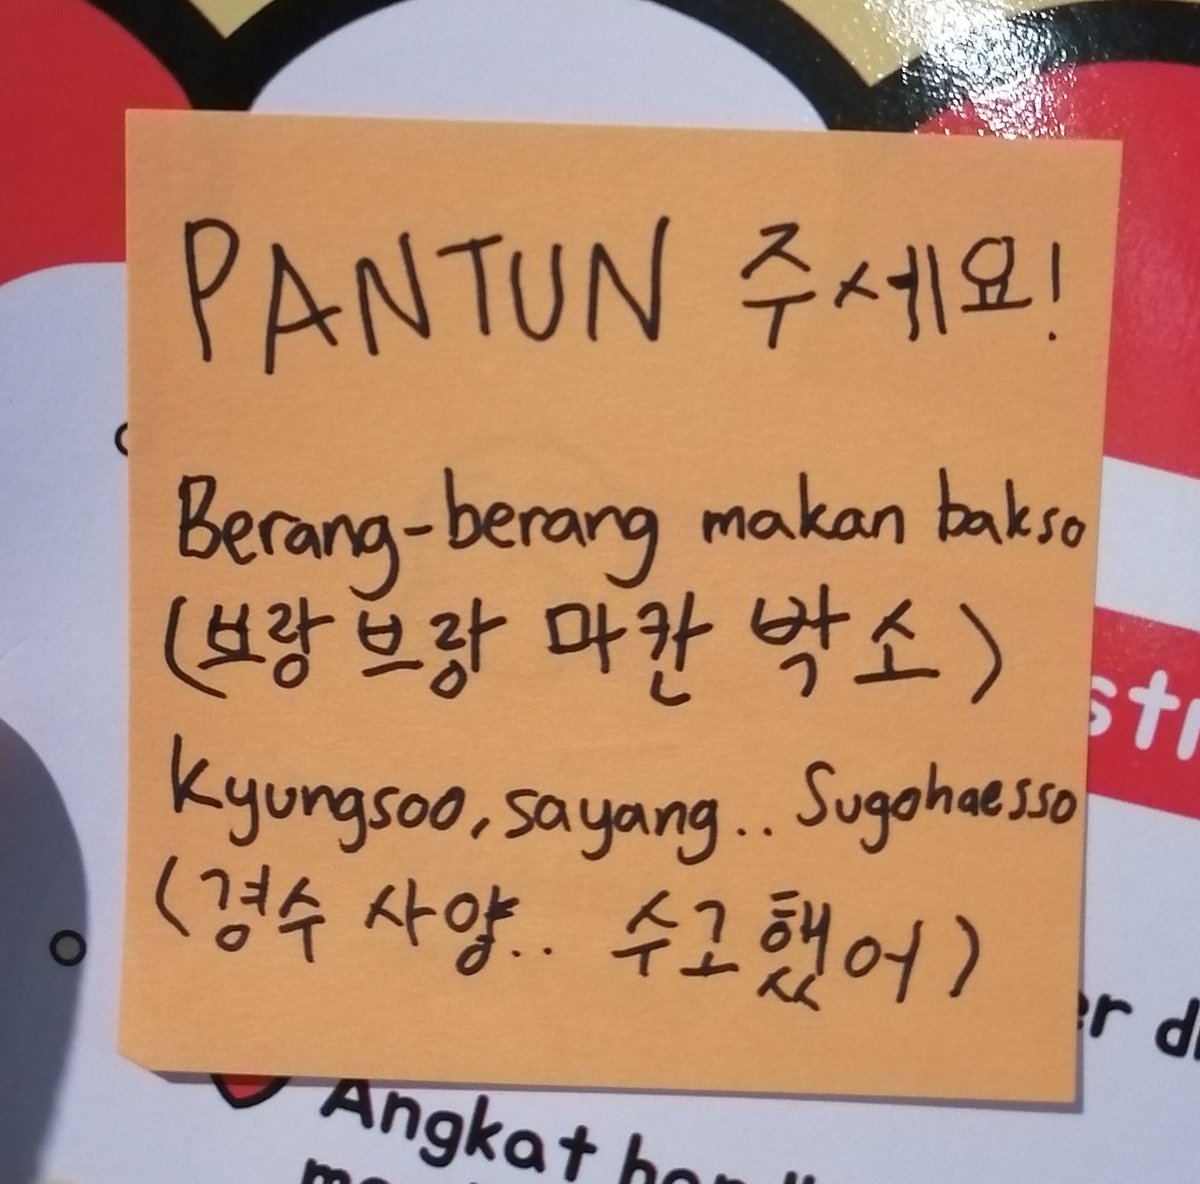 PANTUN 주세요!
Berang-berang makan bakso
(브랑 브랑 마칸 박소)
Kyungsoo, sayang.. Sugohaesso
(경수 사양.. 수고했어)
Angkat